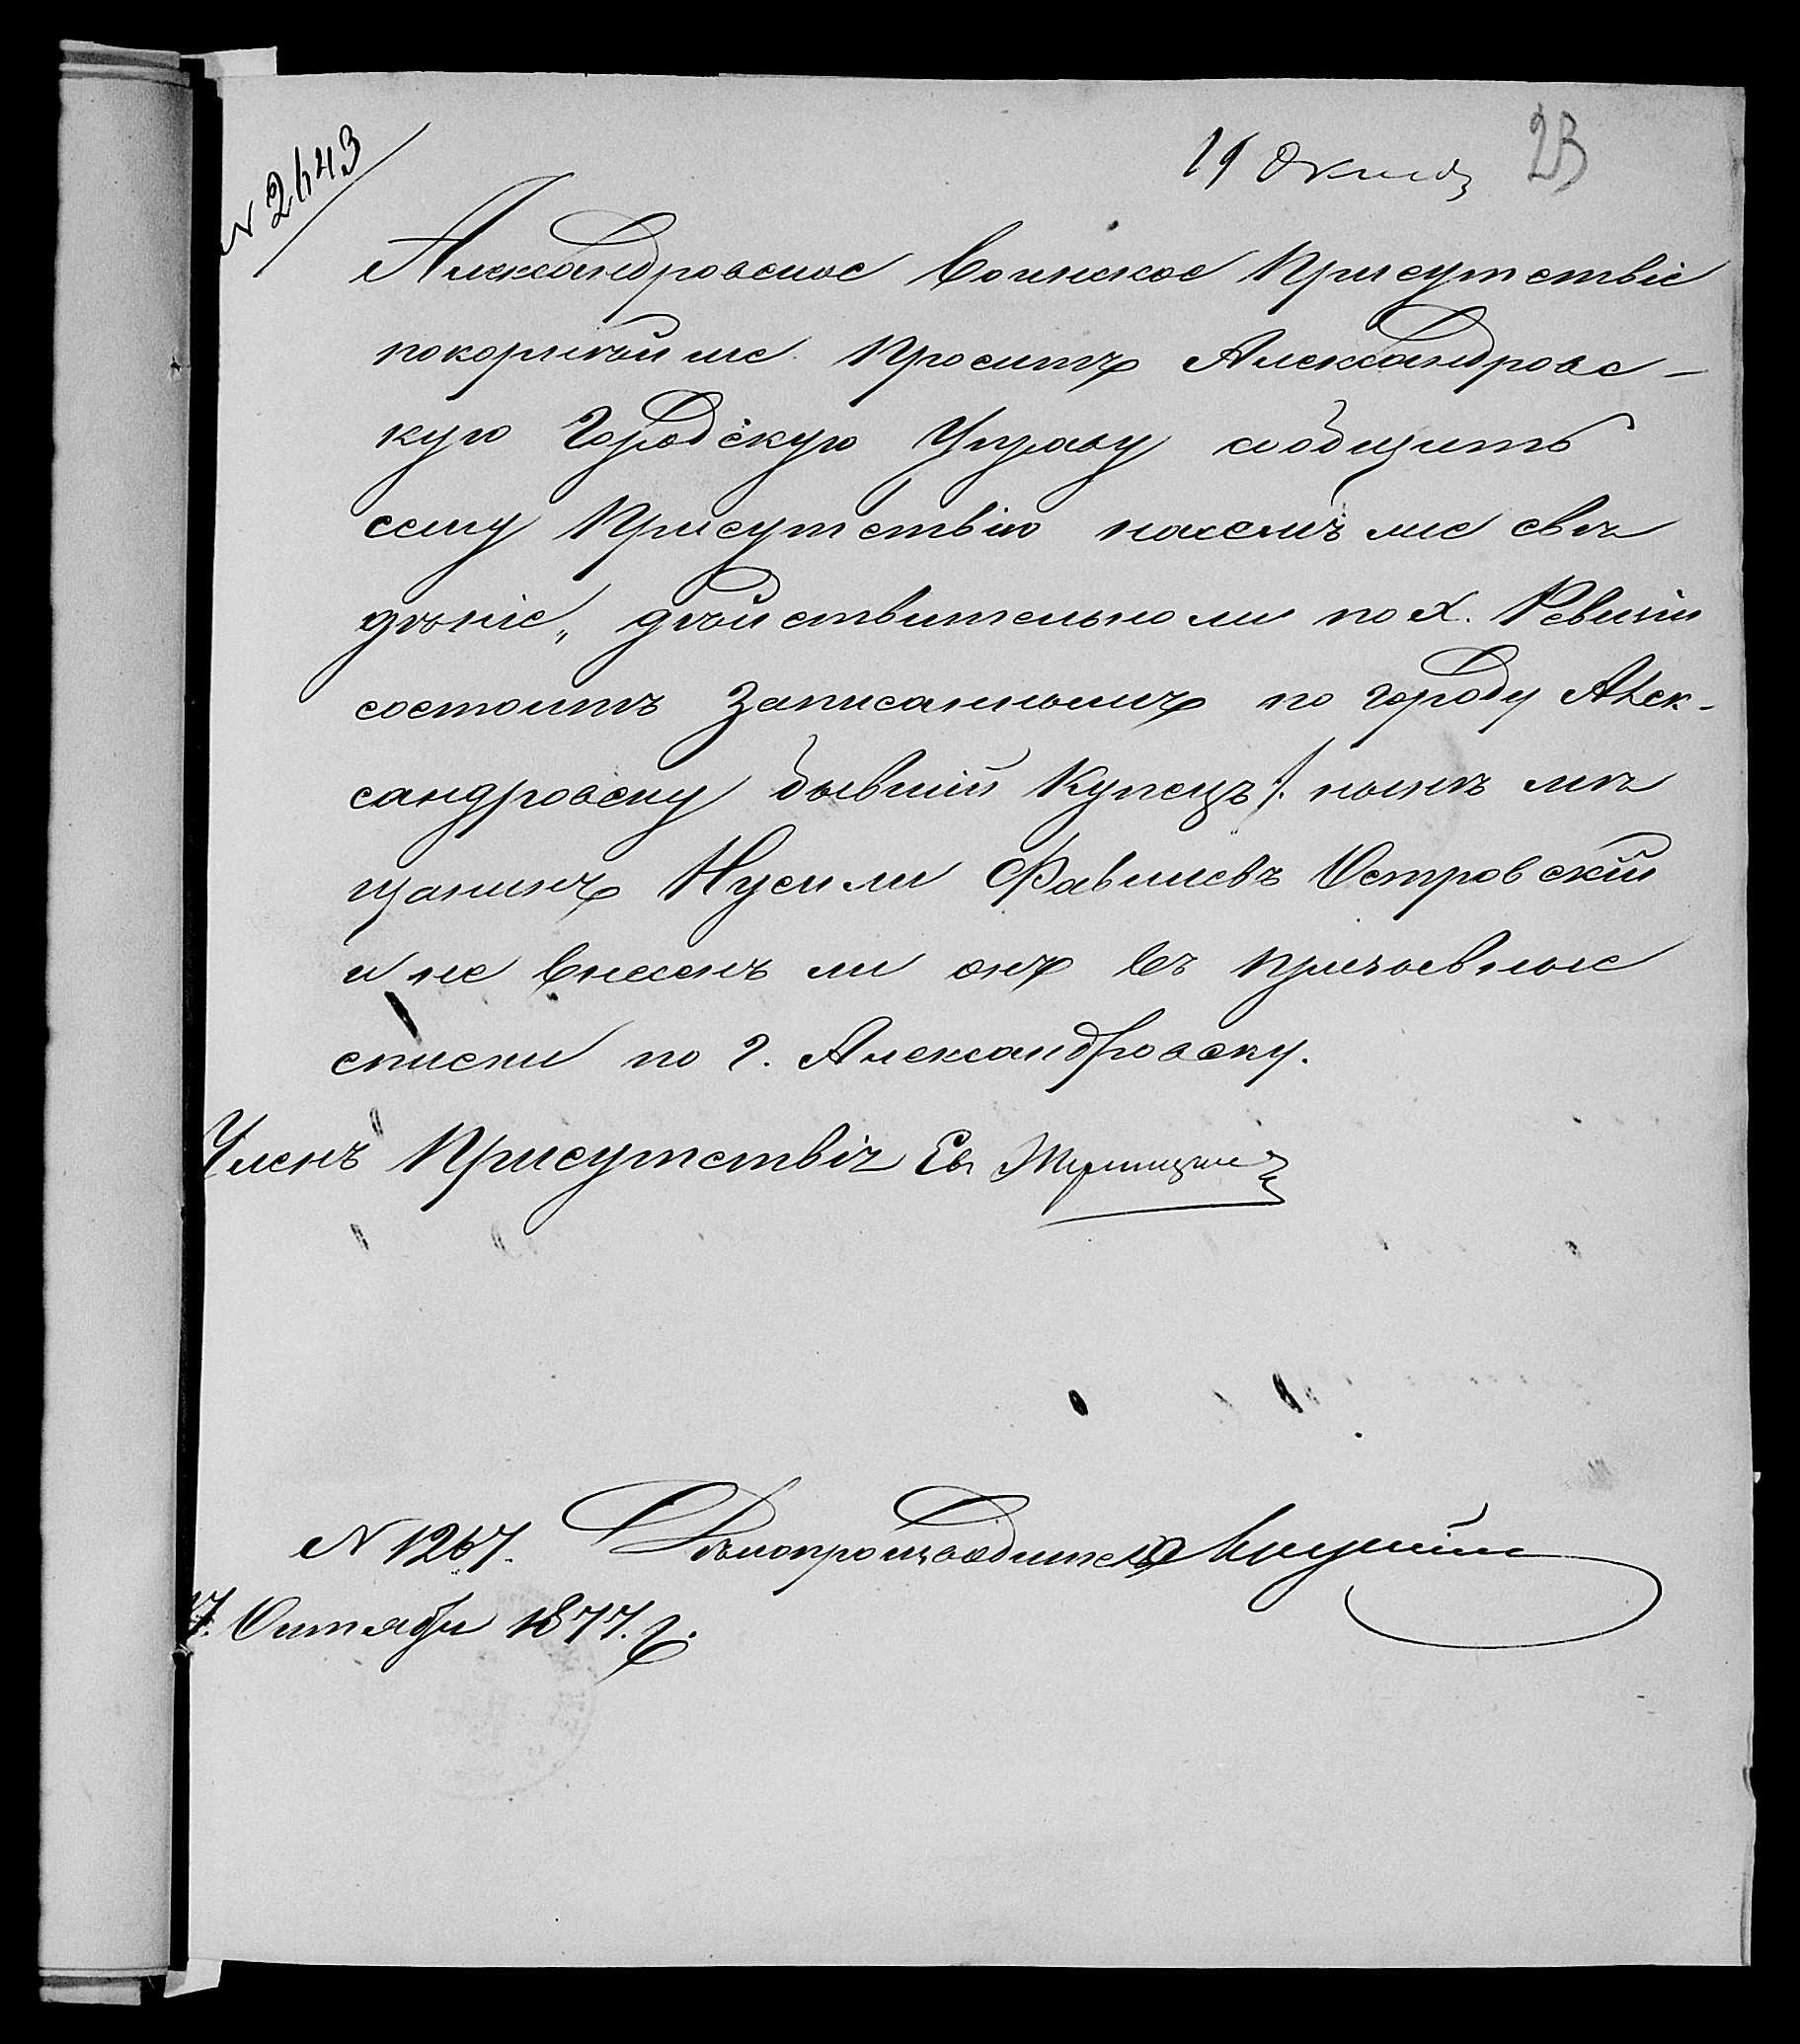 № 2643
19 Октяб 23
Александровское Воинское Присутствіе
покорнѣйше проситъ Александровс-
кую Городскую Управу сообщить
сему Присутствію на семъ же свѣ
дѣніе „ дѣйствительно ли по X. Ревизіи
состоитъ записаннымъ по городу Алек-
сандровску бывшій Купецъ /. нынѣ мѣ
щанинъ Нусили Фавишевъ Островскій
и не внесенъ ли онъ въ призывные
списки по г. Александровску.
Членъ Присутствія Ев.
№ 1267. Дѣлопроизводитель
17. Октября 1877. г.